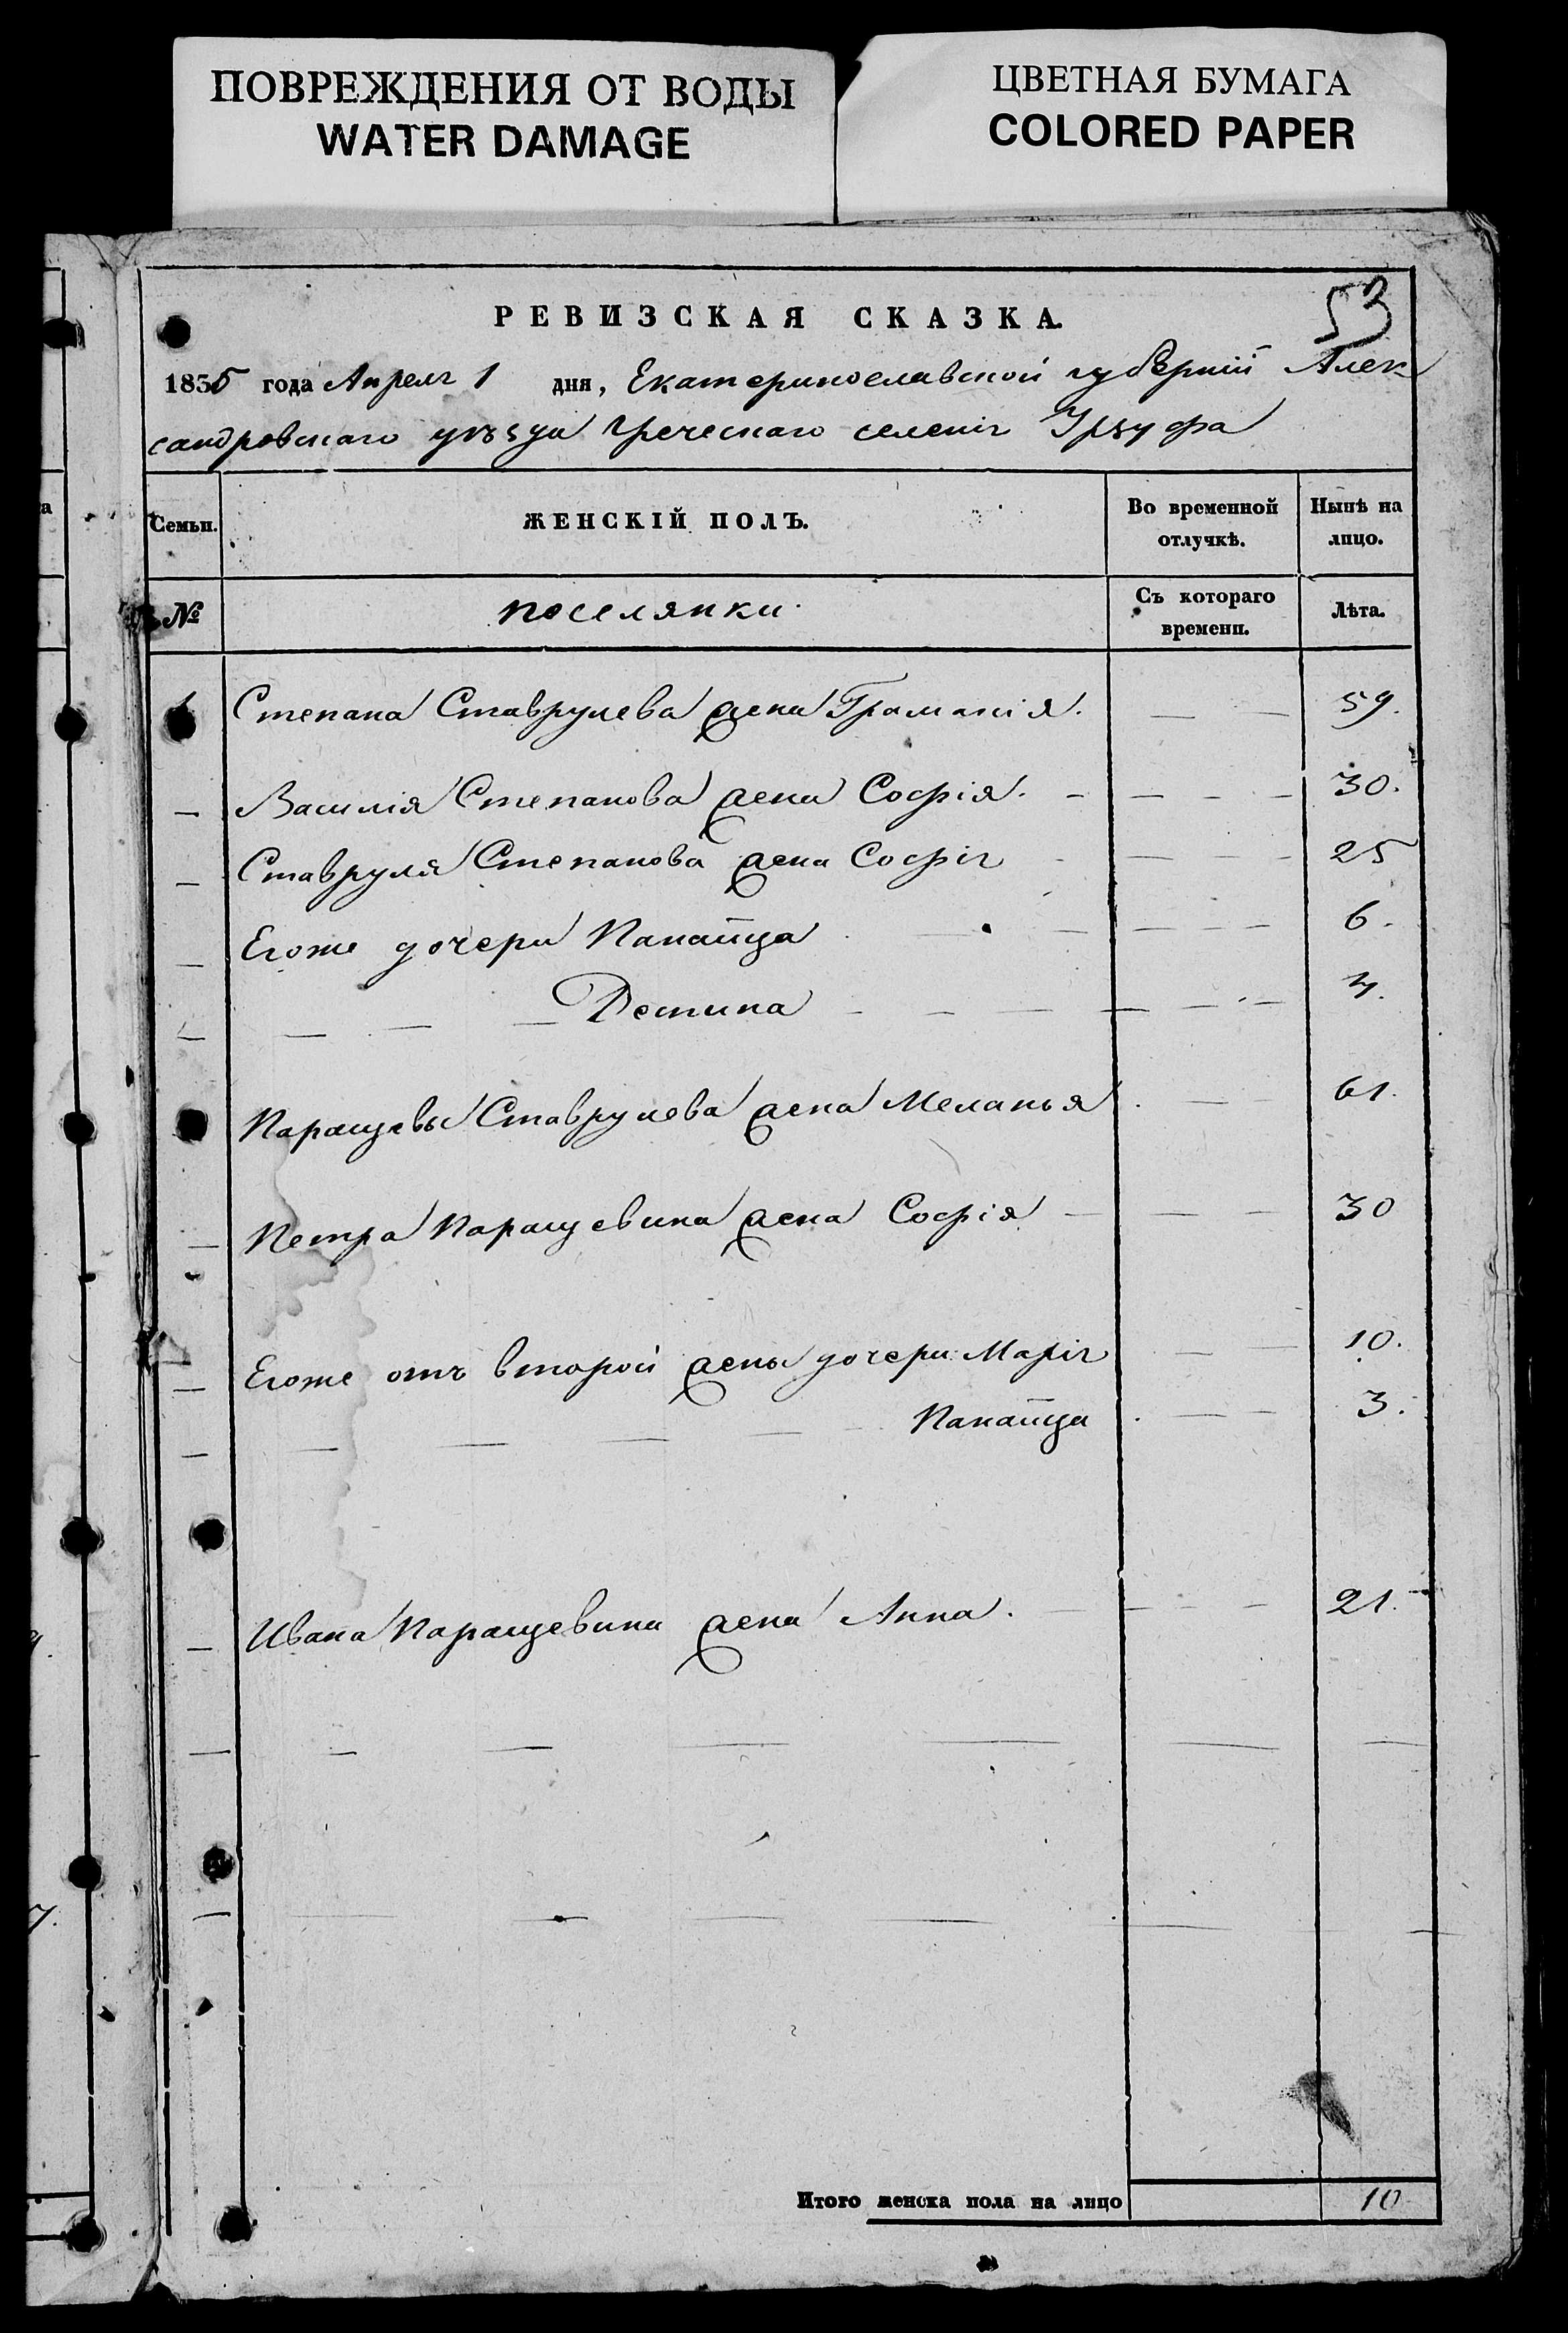 ПОВРЕЖДЕНИЯ ОТ ВОДЫ
WATER DAMAGE
ЦВЕТНАЯ БУМАГА
COLORED PAPER
53
РЕВИЗСКАЯ СКАЗКА.
1835 года Апреля 1 дня, Екатеринославской губернии Алек-
сандровскаго уѣзда Греческаго селенія Урзуфа
Семьи. ЖЕНСКІЙ ПОЛЪ. Во временной отлучкѣ. Нынѣ на лицо.
№ поселянки Съ котораго времени. Лѣта.
Степана Ставрулева жена 59.
Василія Степанова жена Софія. 30.
Ставруля Степанова жена Софія 25
Егоже дочери Панаица 6.
Деспина 4.
Паращевы Ставрулева жена Меланья 61.
Петра Паращевина жена Софія 30
Егоже отъ второй жены дочери Марія 10.
Панаица 3.
Ивана Паращевина жена Анна. 21.
Итого женска пола на лицо 10